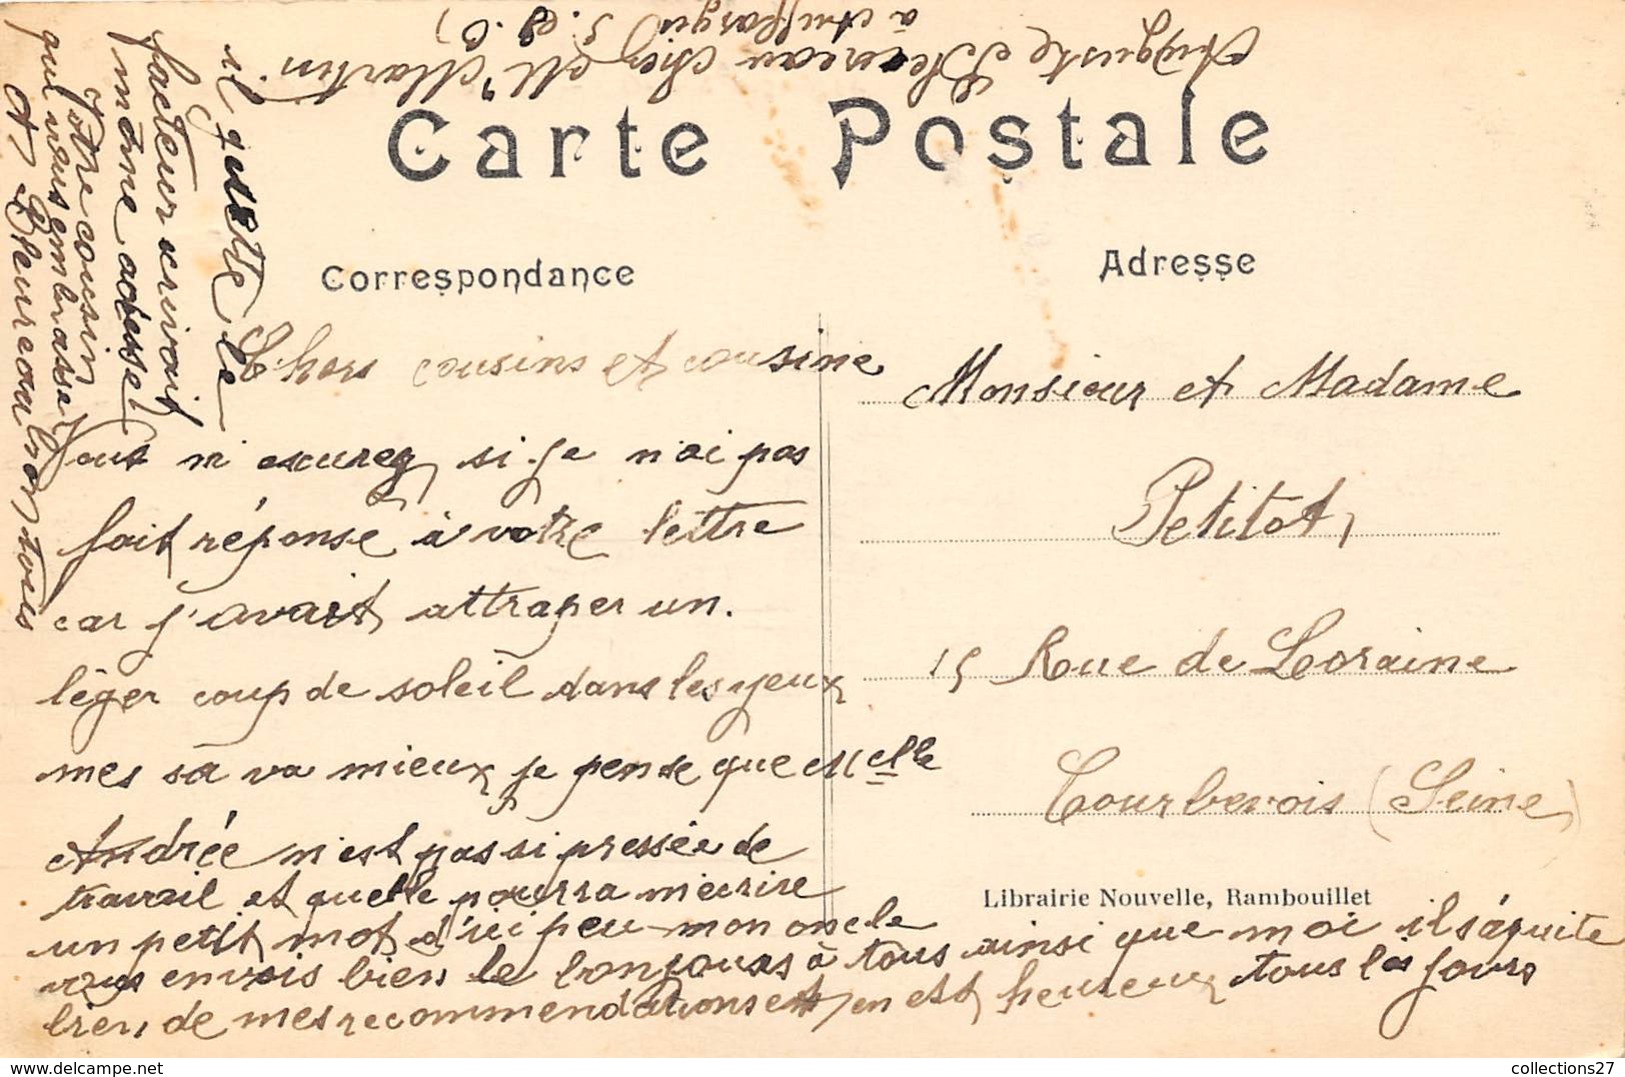 Auguste Pleureau chez Mr Martin
à Auffargis S. & O)
Carte Postale
Correspondance
Adresse
Chers cousins et cousine
Vous m'escurez, si je n'ai pas
fait réponse à votre lettre
car j'avait attraper un.
léger coup de soleil dans les yeux
mes sa va mieux je pense que Melle
Andrée n'est pas si pressée de
travail et quelle pourra m'écrire
un petit mot d'ici peu mon oncle
vous envois bien le bonjours à tous ainsi que moi il s'aquite
bien, de mes recommendations et en est heureux tous les jours
il guette le
facteur ecrivait
même adresse
Votre cousin
qui vous embrasse
A Pleureau tous
Monsieur et Madame
Petitot,
15 Rue de Loraine
Courbevois (Seine)
Librairie Nouvelle, Rambouillet
www.delcampe.net
collections27